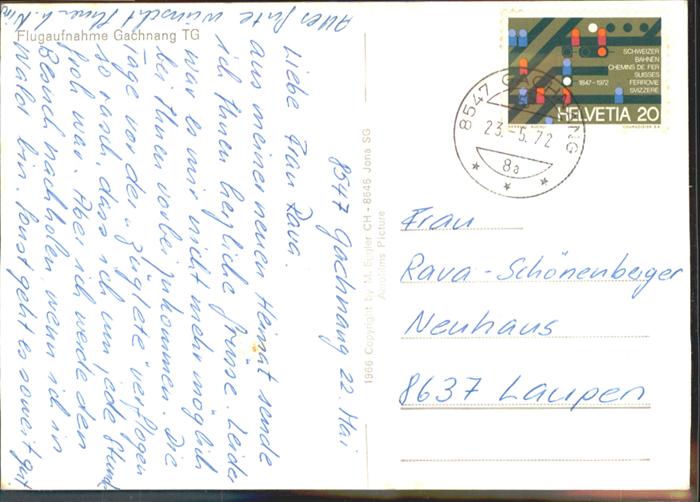 Flugaufnahme Gachnang TG
8547 Gachnang 22. Mai
Liebe Frau Rava.
aus meiner neuen Heimat sende
ich Ihnen herzliche Grüsse. Leider
war es mir nicht mehr möglich
bei Ihnen vorbei zukommen. Die
Tage vor der "züglete" verflogen
so rasch, dass ich um jede Stunde
froh war. Aber ich werde den
Besuch nachholen wenn ich in
Wald bin. Sonst geht es soweit gut
Alles Gute wünscht Ihnen
1966 Copyright by M. Eggler CH-8645 Jona SG
Aerofilms Picture
SCHWEIZER
BAHNEN
CHEMINS DE FER
SUISSES
FERROVIE
SVIZZERE
1847-1972
HELVETIA 20
COURVOISIER S.A.
8547 GACHNANG
23.-5.72
8a
Frau
Rava-Schönenberger
Neuhaus
8637 Laupen